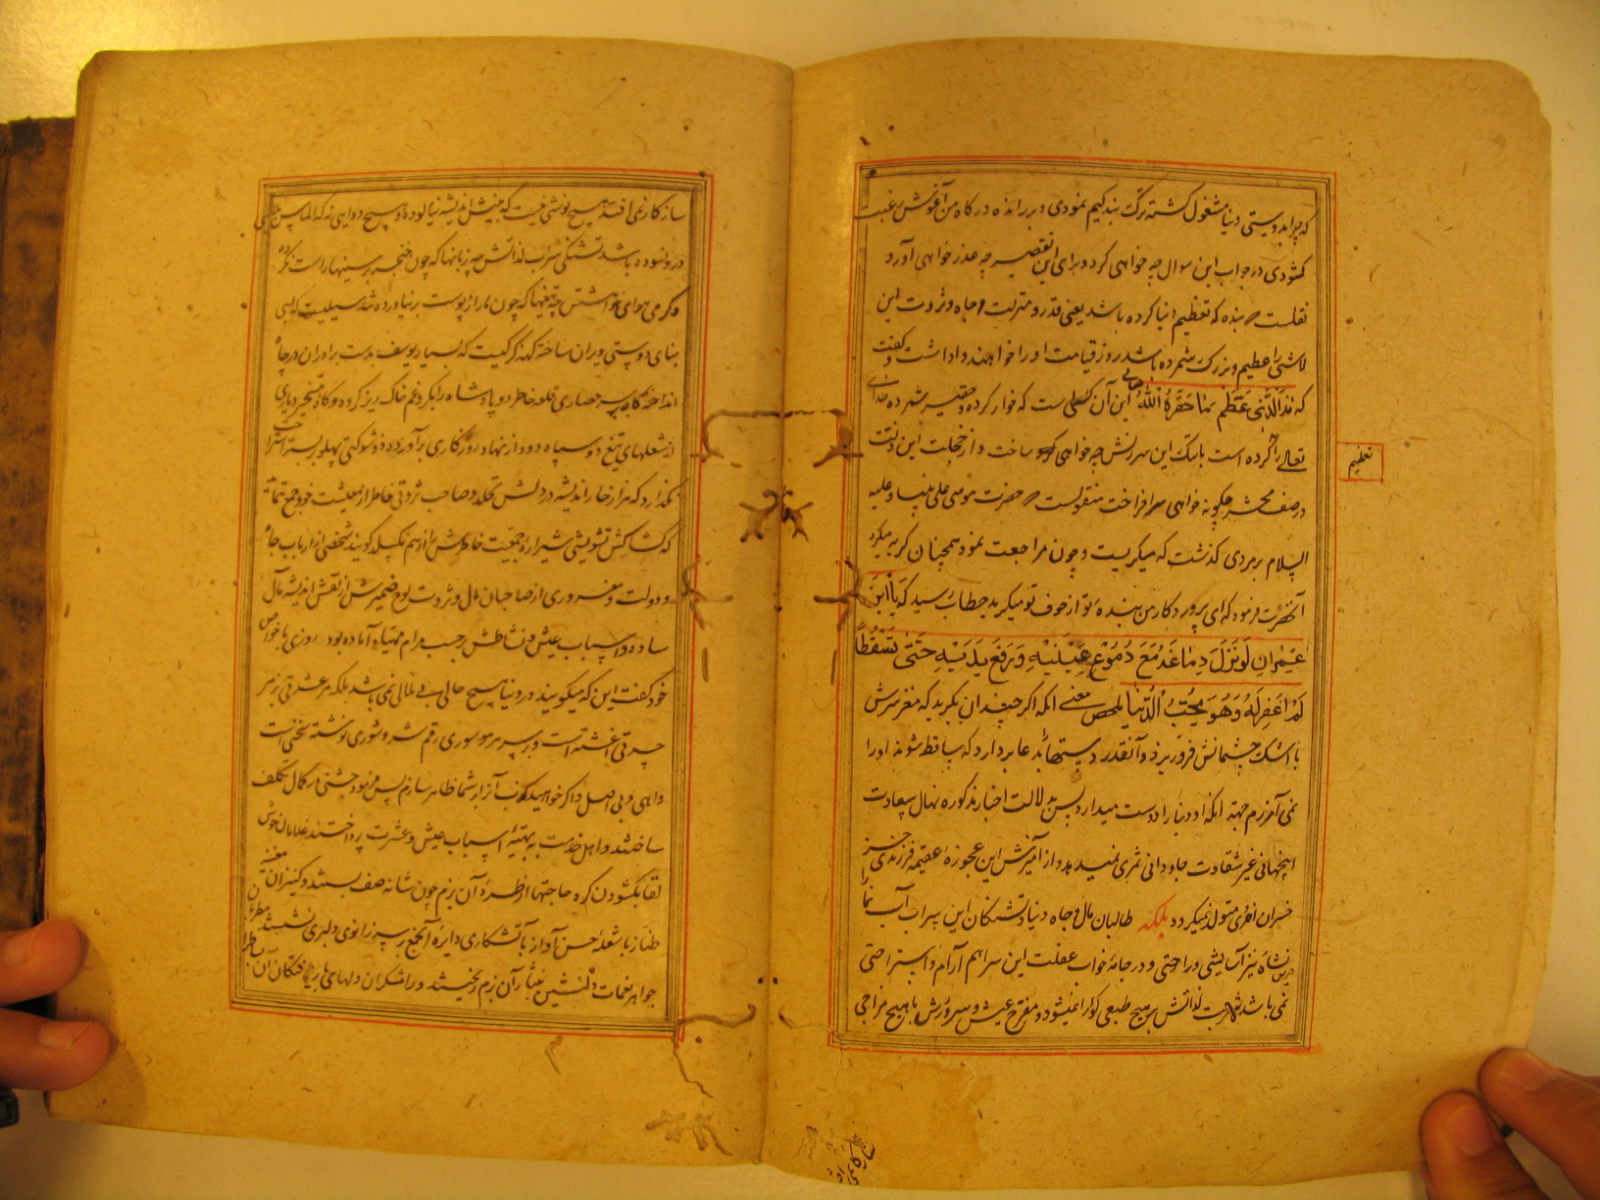 که چرا بدوستی دنیا مشغول کشته ترک بندکیم نمودی و بر رانده درکاه من آغوش رغبت
کشودی در جواب این سوال چه خواهی کرد و برای این تقصیر چه عذر خواهی آورد
نقلست هر بنده که تعظیم دنیا کرده باشد یعنی قدر و منزلت و جاه و ثروت این
لاشئ را عظیم و بزرک شمرده باشد روز قیامت او را خواهند داد داشت و کفت
که هذا الذی عظم ما حقره الله این آن کسی است که خوار کرده و حقیر شمرده خدای
تعالی را کرده است باسک این سرزنش چه خواهی ساخت و از خجلت این
در صف محشر چکونه خواهی سر افراخت منقولست که حضرت موسی علی نبینا و علیه
السلام بر مردی کذشت که میکریست و چون مراجعت نمود همچنان کریه میکرد
آنحضرت فرمود که ای پروردکار من بنده تو از خوف تو میکرید خطاب رسید که یا ابن
عمران لو نزل دماغه مع دموع عینیه و رفع یدیه حتی تسقطا
لم اغفر له و هو یحب الدنیا معنی انکه اکر چندان بکرید که مغز سرش
با اشک چشمانش فرو ریزد و آنقدر دستها بدعا بردارد که ساقط شوند او را
نمی آمرزم جهة انکه او دنیا را دوست میدارد پس بدلالت اخبار مذکوره نهال سعادت
اینجهانی غیر شقاوت جاودانی ثمری نمیدهد و از آمیزش این عجوزه عقیمه فرزندی جز
خسران اخروی متولد نمیکردد بلکه طالبان مال و جاه دنیا و تشنکان این سراب آب نما را
درین نشاه نیز آسایشی و راحتی و در جامه خواب غفلت این سرا هم آرام و استراحتی
نمی باشد شربت لذاتش بر هیچ طبعی کوارا نمیشود و مفرح عیش و سرورش با هیچ مزاجی
تعظیم
سازکاری
سازکار نمی افتد هیچ نوشی نیست که بنیش اندیشه نیالوده و هیچ دوایی نه که الماس
درو نسوده باشد تشنکی شراب لذاتش چه زبانها که چون خنجر بر سینها راست نکرده
و کرمی هوای خواهشش چه تیغها که چون مار از پوست بر نیاورده شد سیلیست که بسی
بنای دوستی ویران ساخته کهنه کرکیست که بسیار یوسف بدست برادران در چاه
انداخته کاه بر سر حصاری قلعه خاطر دو پادشاه را بکرد غم خاک ریز کردد و کاه
از شعلهای تیغ دو سپاه دود از نهاد روزکاری برآورد ذو شوکتی پهلو بر بستر استراحت
نکذارد که هزار خار اندیشه در دلش نخلد و صاحب ثروتی خاطر از معیشت خود جمع
که کشاکش تشویشی شیرازه جمعیت خاطرش از هم نکسلد کویند شخصی از ارباب جاه
و دولت و مغروری از صاحبان مال و ثروت لوح ضمیرش از نقش اندیشه مآل
ساده و اسباب عیش و نشاطش حسب مرام مهیا و آماده بود روزی با خواص
خود کفت این که میکویند در دنیا هیچ حالی بی ملالی نمی باشد بلکه هر عشرتی بزهر
حسرتی آغشته است و بر سر هر سوری رقم شر و شوری نوشته سخنی است
واهی و بی اصل و اکر خواهید کذب آنرا بر شما ظاهر سازم پس فرمود جشنی در کمال تکلف
ساختند و اهل خدمت به تهیه اسباب عیش و عشرت پرداختند غلامان خوش
لقا بکشودن کره حاجتها از طره آن بزم چون شانه صف بستند و کنیزان مغنیه
طناز با شعله حسن آواز باتشکاری دایره آنجمع بر سر زانوی دلبری نشستند مطربان
جواهر نغمات دلنشین نثار آن بزم ریختند و رامشکران دلهای